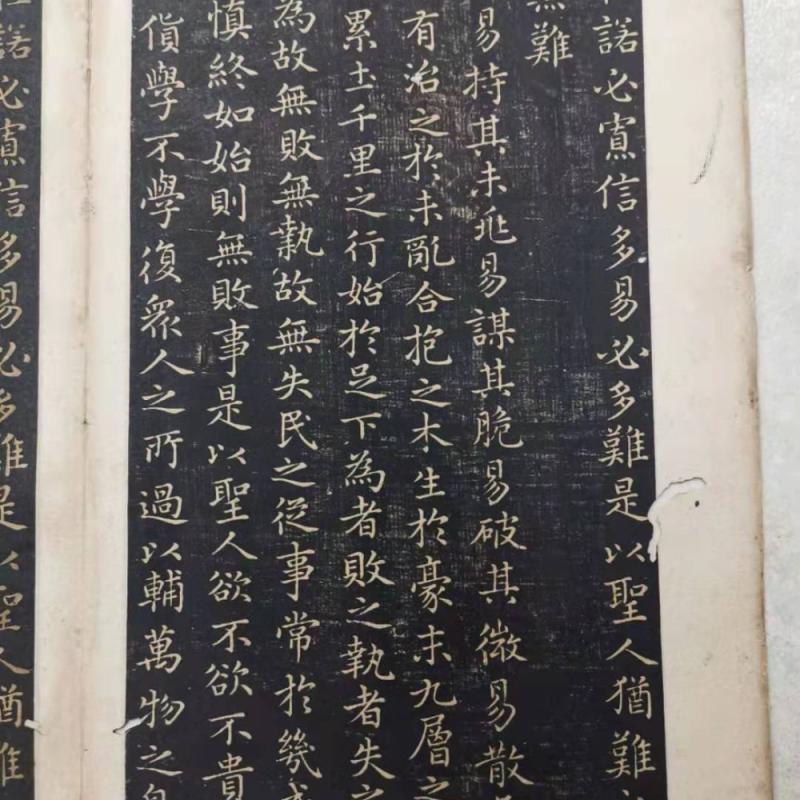 諾必寡信多易必多難是以聖人猶難
無難
易持其未兆易謀其脆易破其微易散
有治之於未亂合抱之木生於豪末九層之
累土千里之行始於足下為者敗之執者失之
為故無敗無執故無失民之從事常於幾成
慎終如始則無敗事是以聖人欲不欲不貴
貨學不學復眾人之所過以輔萬物之自
諾必寡信多易必多難是以聖人猶難